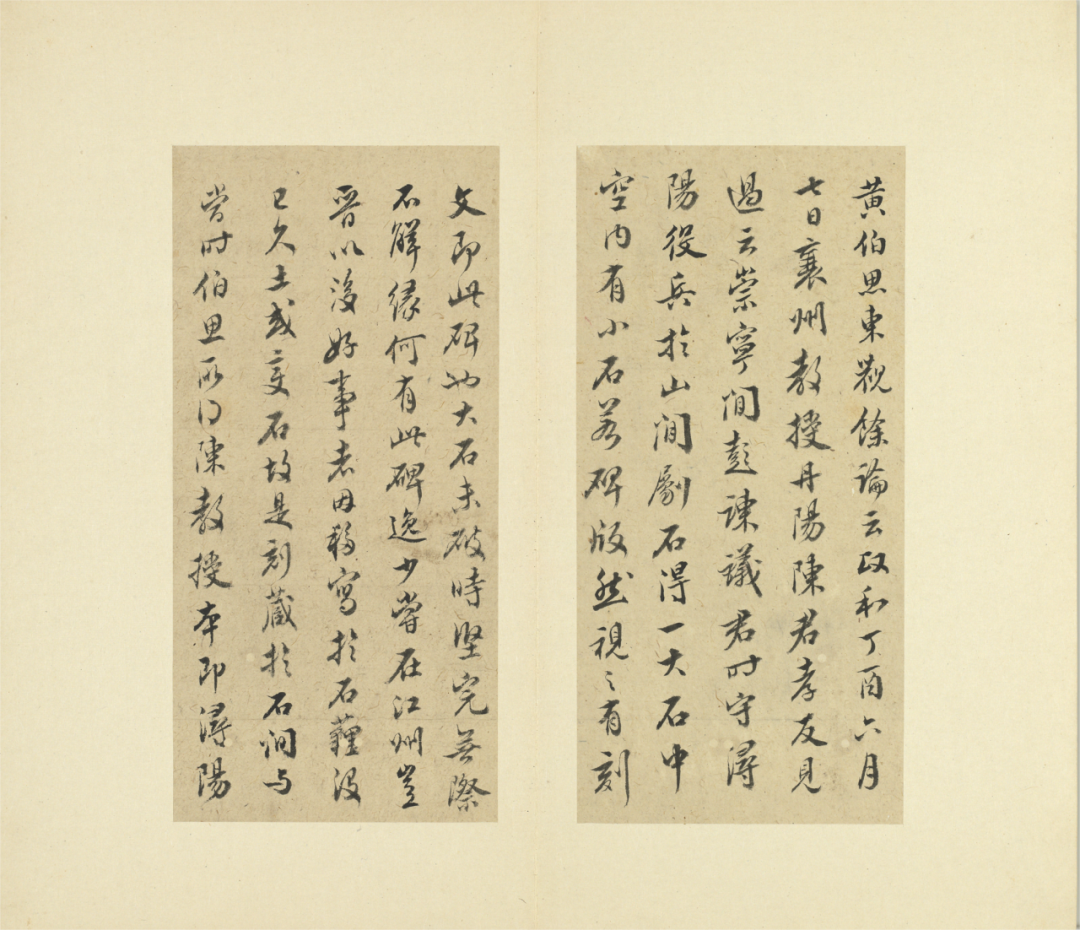 黃伯思東觀餘論云政和丁酉六月
七日襄州教授丹陽陳君孝友見
過云崇寧間彭諫議君時守潯
陽役兵於山間劚石得一大石中
空內有小石若碑版然視之有刻
文即此碑也大石未破時堅完無際
不解緣何有此碑逸少嘗在江州豈
晉以後好事者因移寫於石薶沒
已久土或變石故是刻藏於石澗与
當時伯思所得陳教授本即潯陽